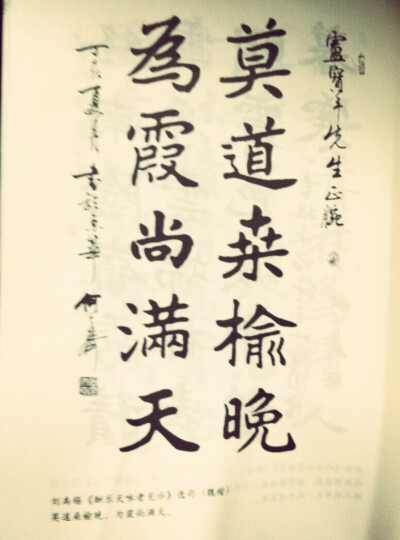 先生正腕
莫道桑榆晚
為霞尚滿天
丁亥夏月書於京華
刘禹锡《酬乐天咏老见示》选句（魏楷）
莫道桑榆晚，为霞尚满天。